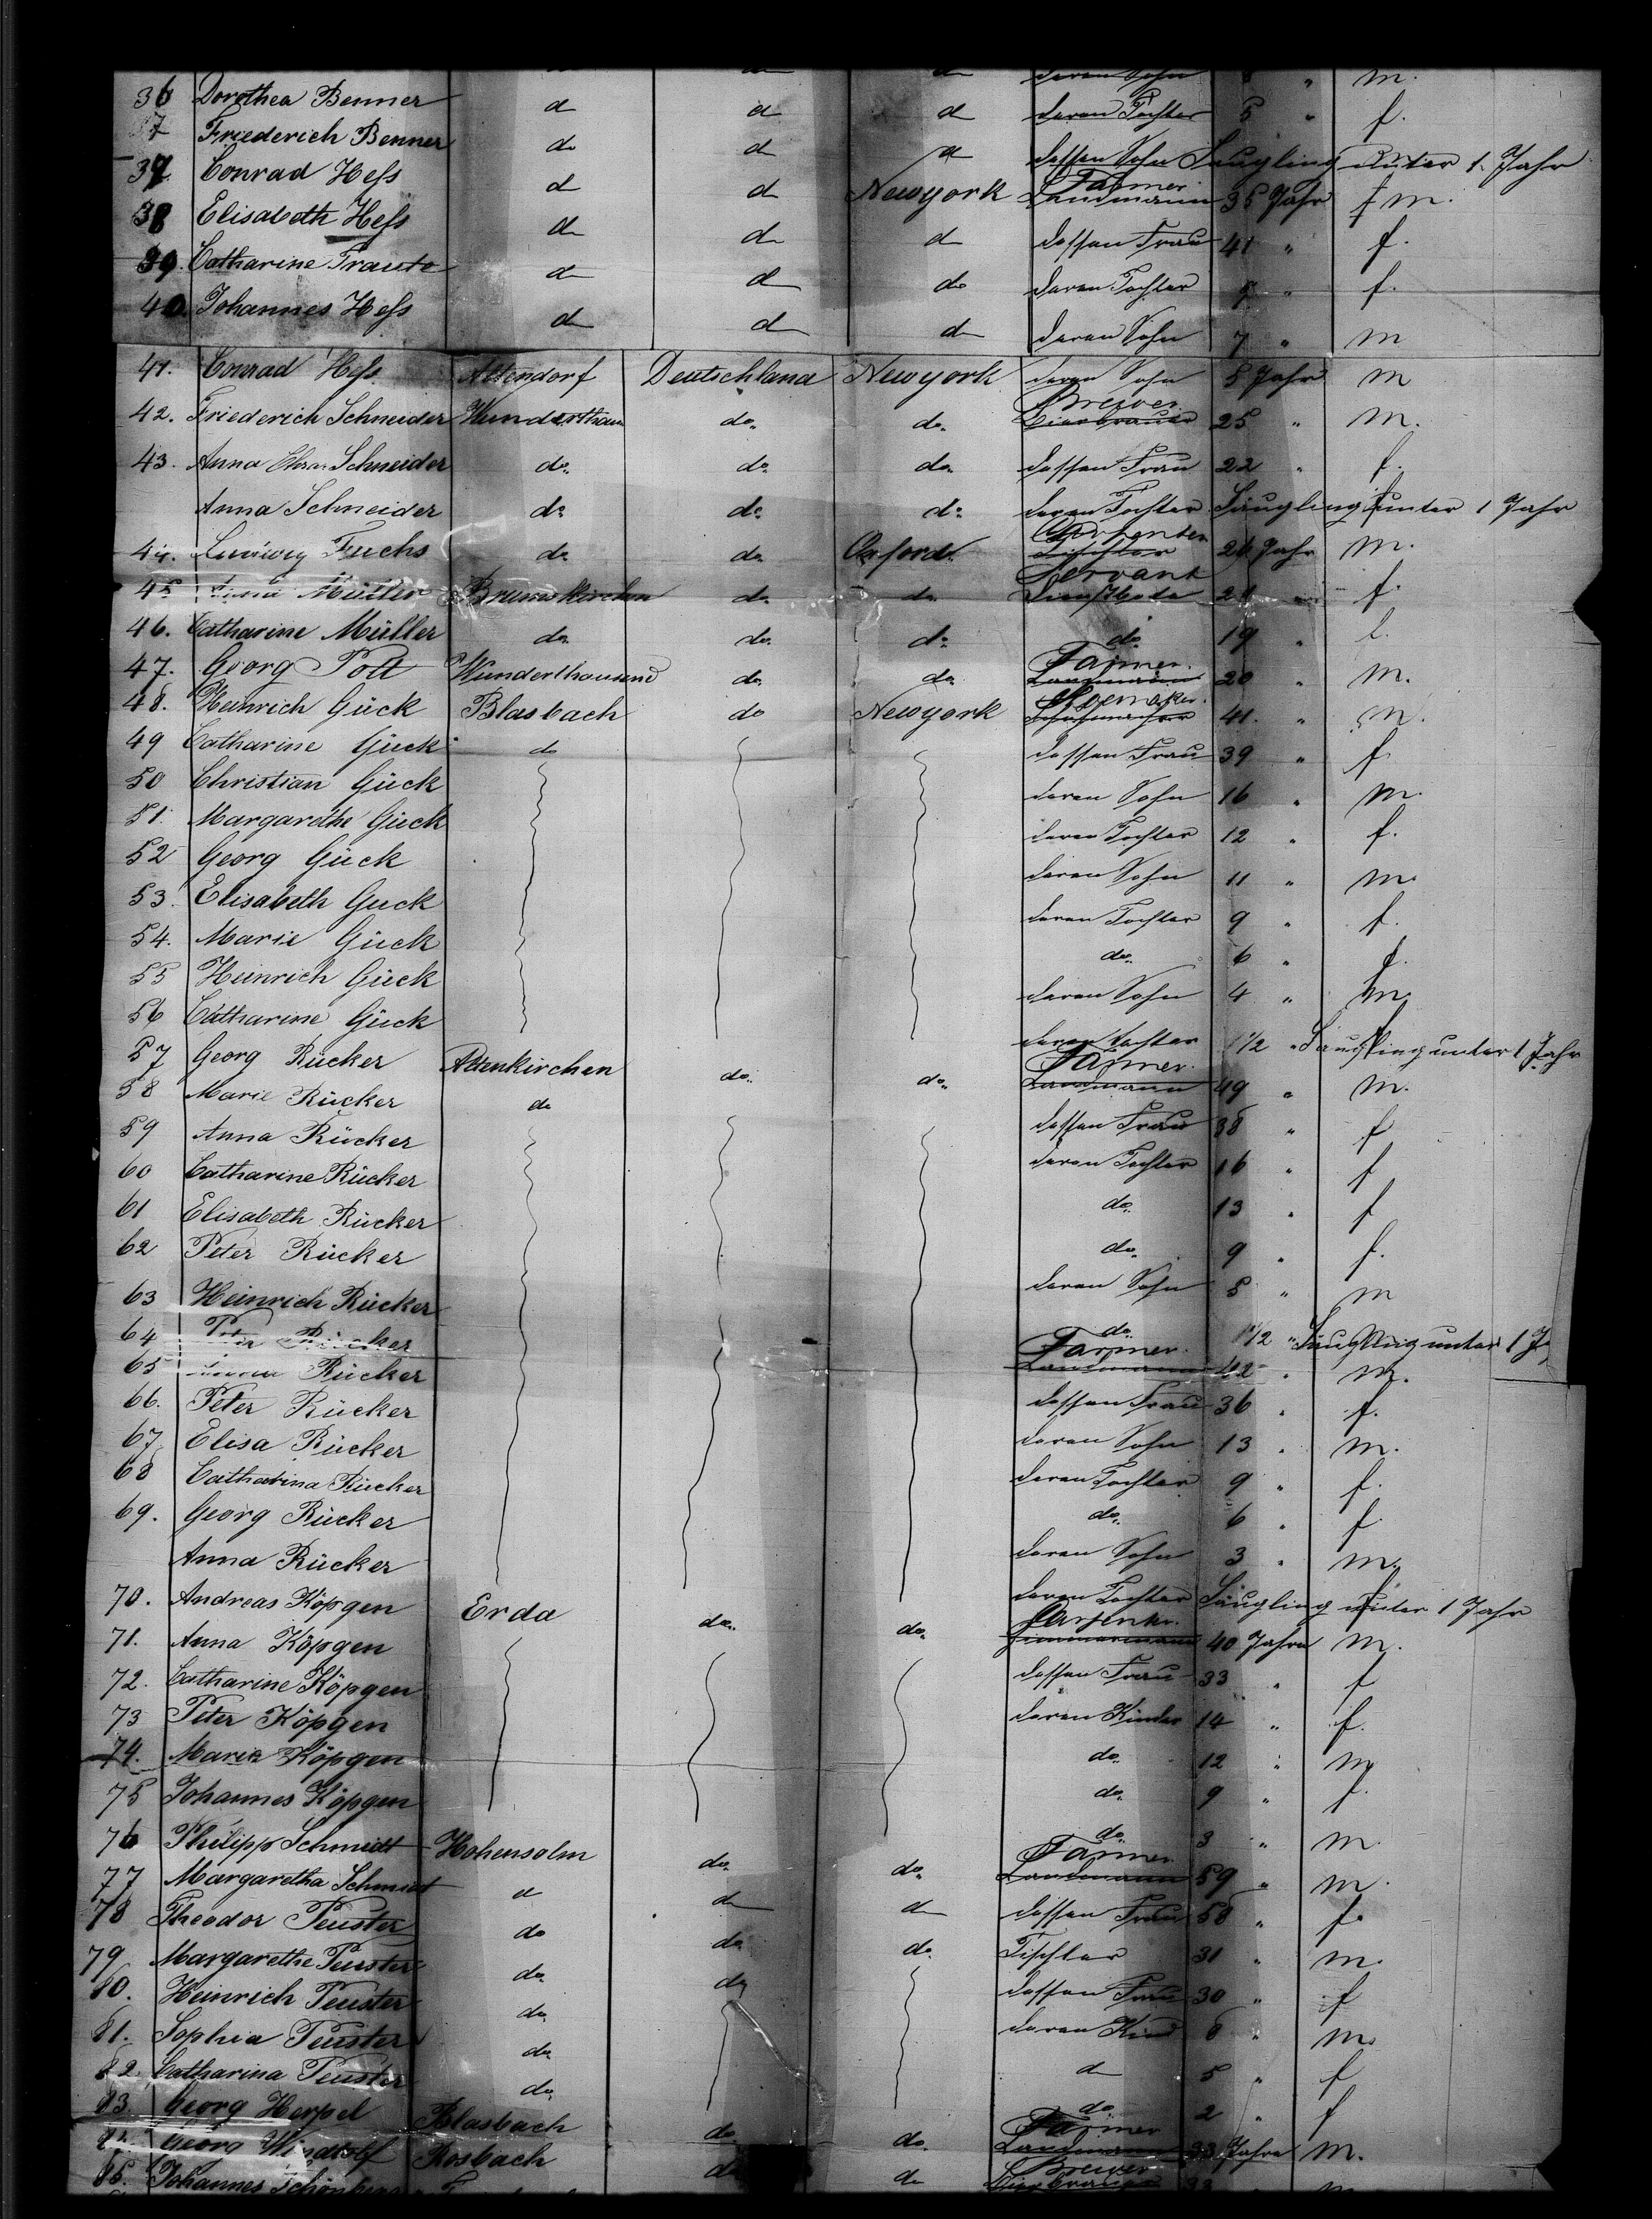 36 Dorothea Benner d d d deren Tochter 5 " f.
Friederich Benner do d d dessen Sohn Säugling unter 1 Jahr
37 Conrad Hess d d Newyork Farmer Landmann 35 Jahr m.
38 Elisabeth Hess d d d dessen Frau 41 " f.
39. Catharine d d do deren Tochter " f.
40. Johannes Hess d d d deren Sohn 7 " m
41. Conrad Hess Deutschland Newyork deren Sohn 5 Jahr m
42. Friederich Schneider do. do. Brewer Bierbrauer 25 " m.
43. Anna Schneider do. do. do. dessen Frau 22 " f.
Anna Schneider do. do. do. deren Tochter Säugling unter 1 Jahr
44. Ludwig Fuchs do. do. Oxford. Carpenter Tischler Jahr m.
45 Müller do. do. Servant Dienstbote f.
46. Catharine Müller do. do. do. do 19 " f.
47. Georg Pott Wunderthausend do. do. Farmer. Landmann 20 " m.
48. Heinrich Gück Blasbach do Newyork Shoemaker. Schuhmacher 41. " m.
49 Catharine Gück do dessen Frau 39 " f
50 Christian Gück deren Sohn 16 " m.
51. Margarethe Gück deren Tochter 12 " f.
52 Georg Gück deren Sohn 11 " m.
53. Elisabeth Guck deren Tochter 9 " f.
54. Marie Gück do. 6 " f.
55 Heinrich Gück deren Sohn 4 " m.
56 Catharine Gück deren Tochter 1 1/2 " Säugling unter 1 Jahr
57 Georg Rücker Altenkirchen do. do. Farmer. Landmann 49 " m.
58 Marie Rücker do dessen Frau 38 " f
59 Anna Rücker deren Tochter 16 " f
60 Catharine Rücker do. 13 " f
61 Elisabeth Rücker do. 9 " f.
62 Peter Rücker deren Sohn 5 " m
63 Heinrich Rücker do. 1 1/2 " Säugling unter 1 J
64 Peter Rücker Farmer. Landmann 42 " m.
65 Rücker dessen Frau 36 " f.
66. Peter Rücker deren Sohn 13 " m.
67. Elisa Rücker deren Tochter 9 " f.
68 Catharina Rücker do. 6 " f.
69. Georg Rücker deren Sohn 3 " m.
Anna Rücker deren Tochter Säugling unter 1 Jahr
70. Andreas Köpgen Erda do. do. Zimmermann 40 Jahre m.
71. Anna Köpgen dessen Frau 33 " f
72. Catharine Köpgen deren Kinder 14 " f.
73 Peter Köpgen do. 12 " m
74. Marie Köpgen do. 9 " f.
75 Johannes Köpgen do. 3 " m
76 Philipp Schmidt Hohensolm do. do. Farmer Landmann 59 " m.
77 Margaretha Schmidt d d d dessen Frau 58 " f.
78 Theodor Peuster do do. do. Tischler 31 " m.
79 Margarethe Peuster do. do dessen Frau 30 " f
80. Heinrich Peuster do. deren Kind " m.
81. Sophia Peuster do. d 5 " f
82. Catharina Peuster do. do 2 " f
83. Georg Herpel Blasbach do. do. Farmer Landmann 33 Jahre m.
Georg Rosbach do do Brewer Bierbrauer
Johannes